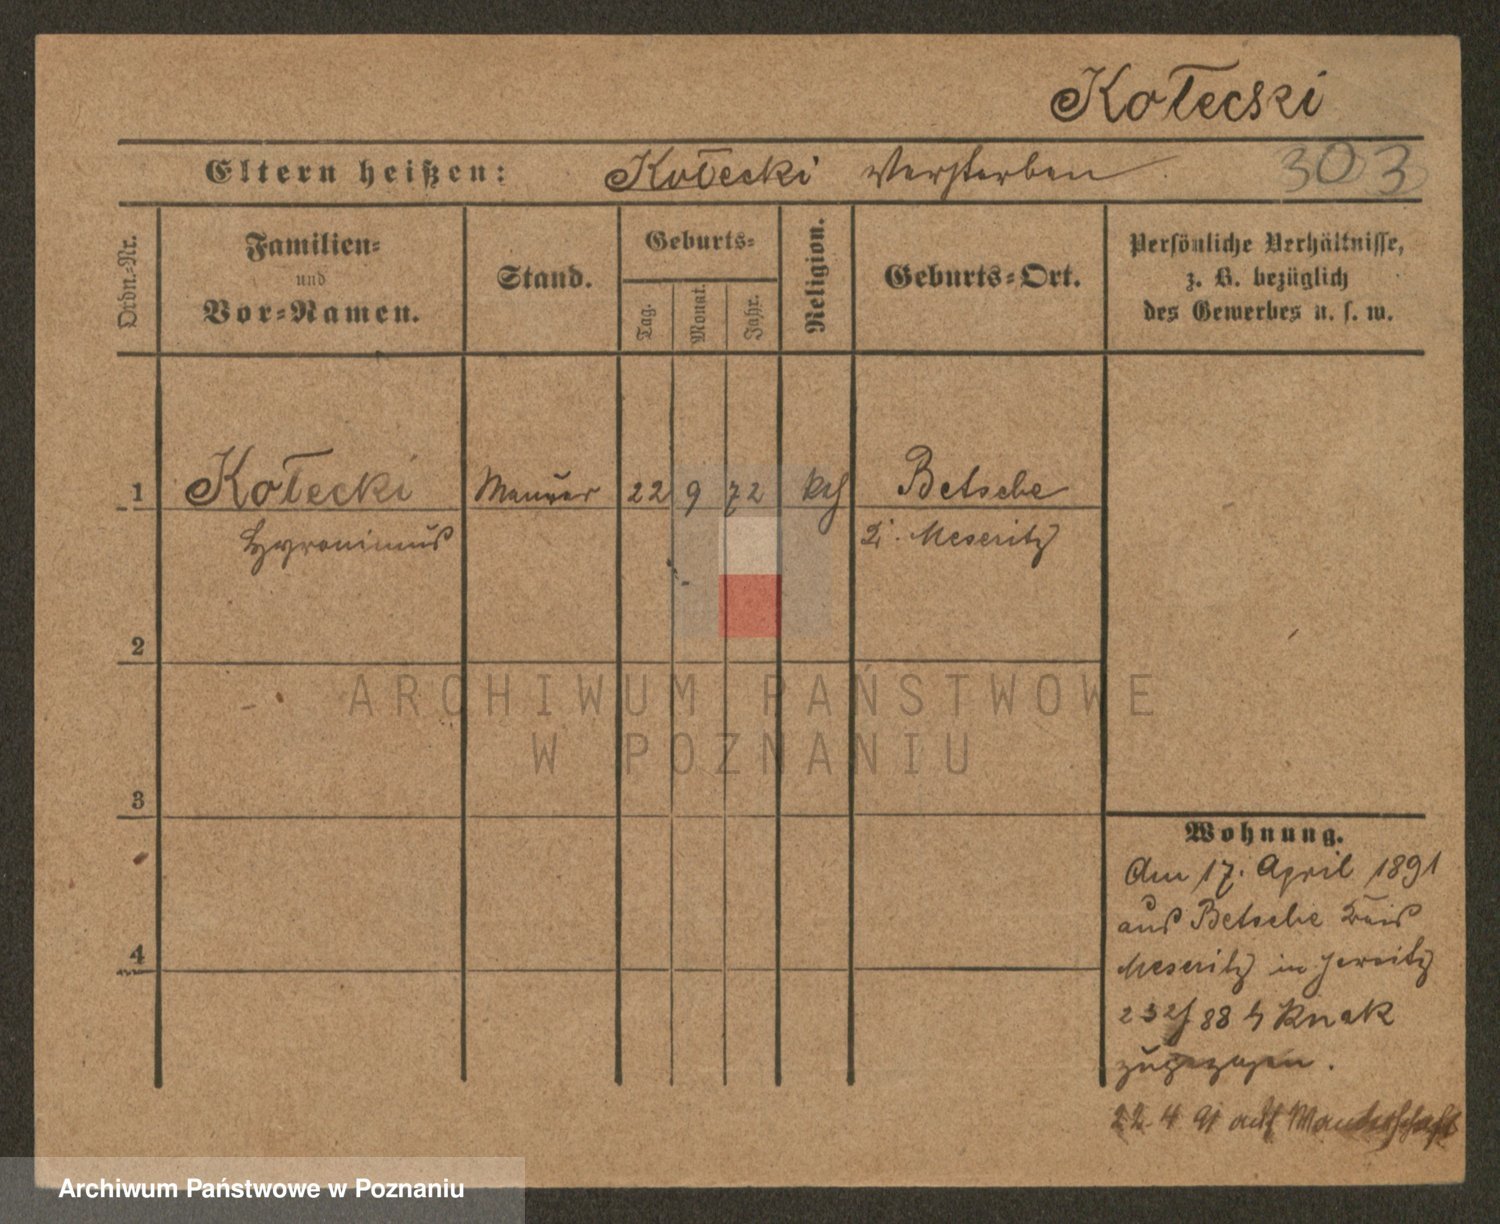 Kołecski
Eltern heißen: Kołecki Verstorben.
303
Ordn.-Nr.
Familien-
und
Vor-Namen.
Stand.
Geburts-
Tag.
Monat.
Jahr.
Religion.
Geburts-Ort.
Persönliche Verhältnisse,
z. B. bezüglich
des Gewerbes u. s. w.
1 Kołecki Maurer 22 9 72 kth Betsche
Hyronimus Kr. Meseritz
2
ARCHIWUM PAŃSTWOWE
W POZNANIU
3
Wohnung.
Am 17. April 1891
aus Betsche Kreis
4
Meseritz in Jersitz
232/88 b Knak
zugezogen.
22 4 91 auf Wanderschaft
Archiwum Państwowe w Poznaniu